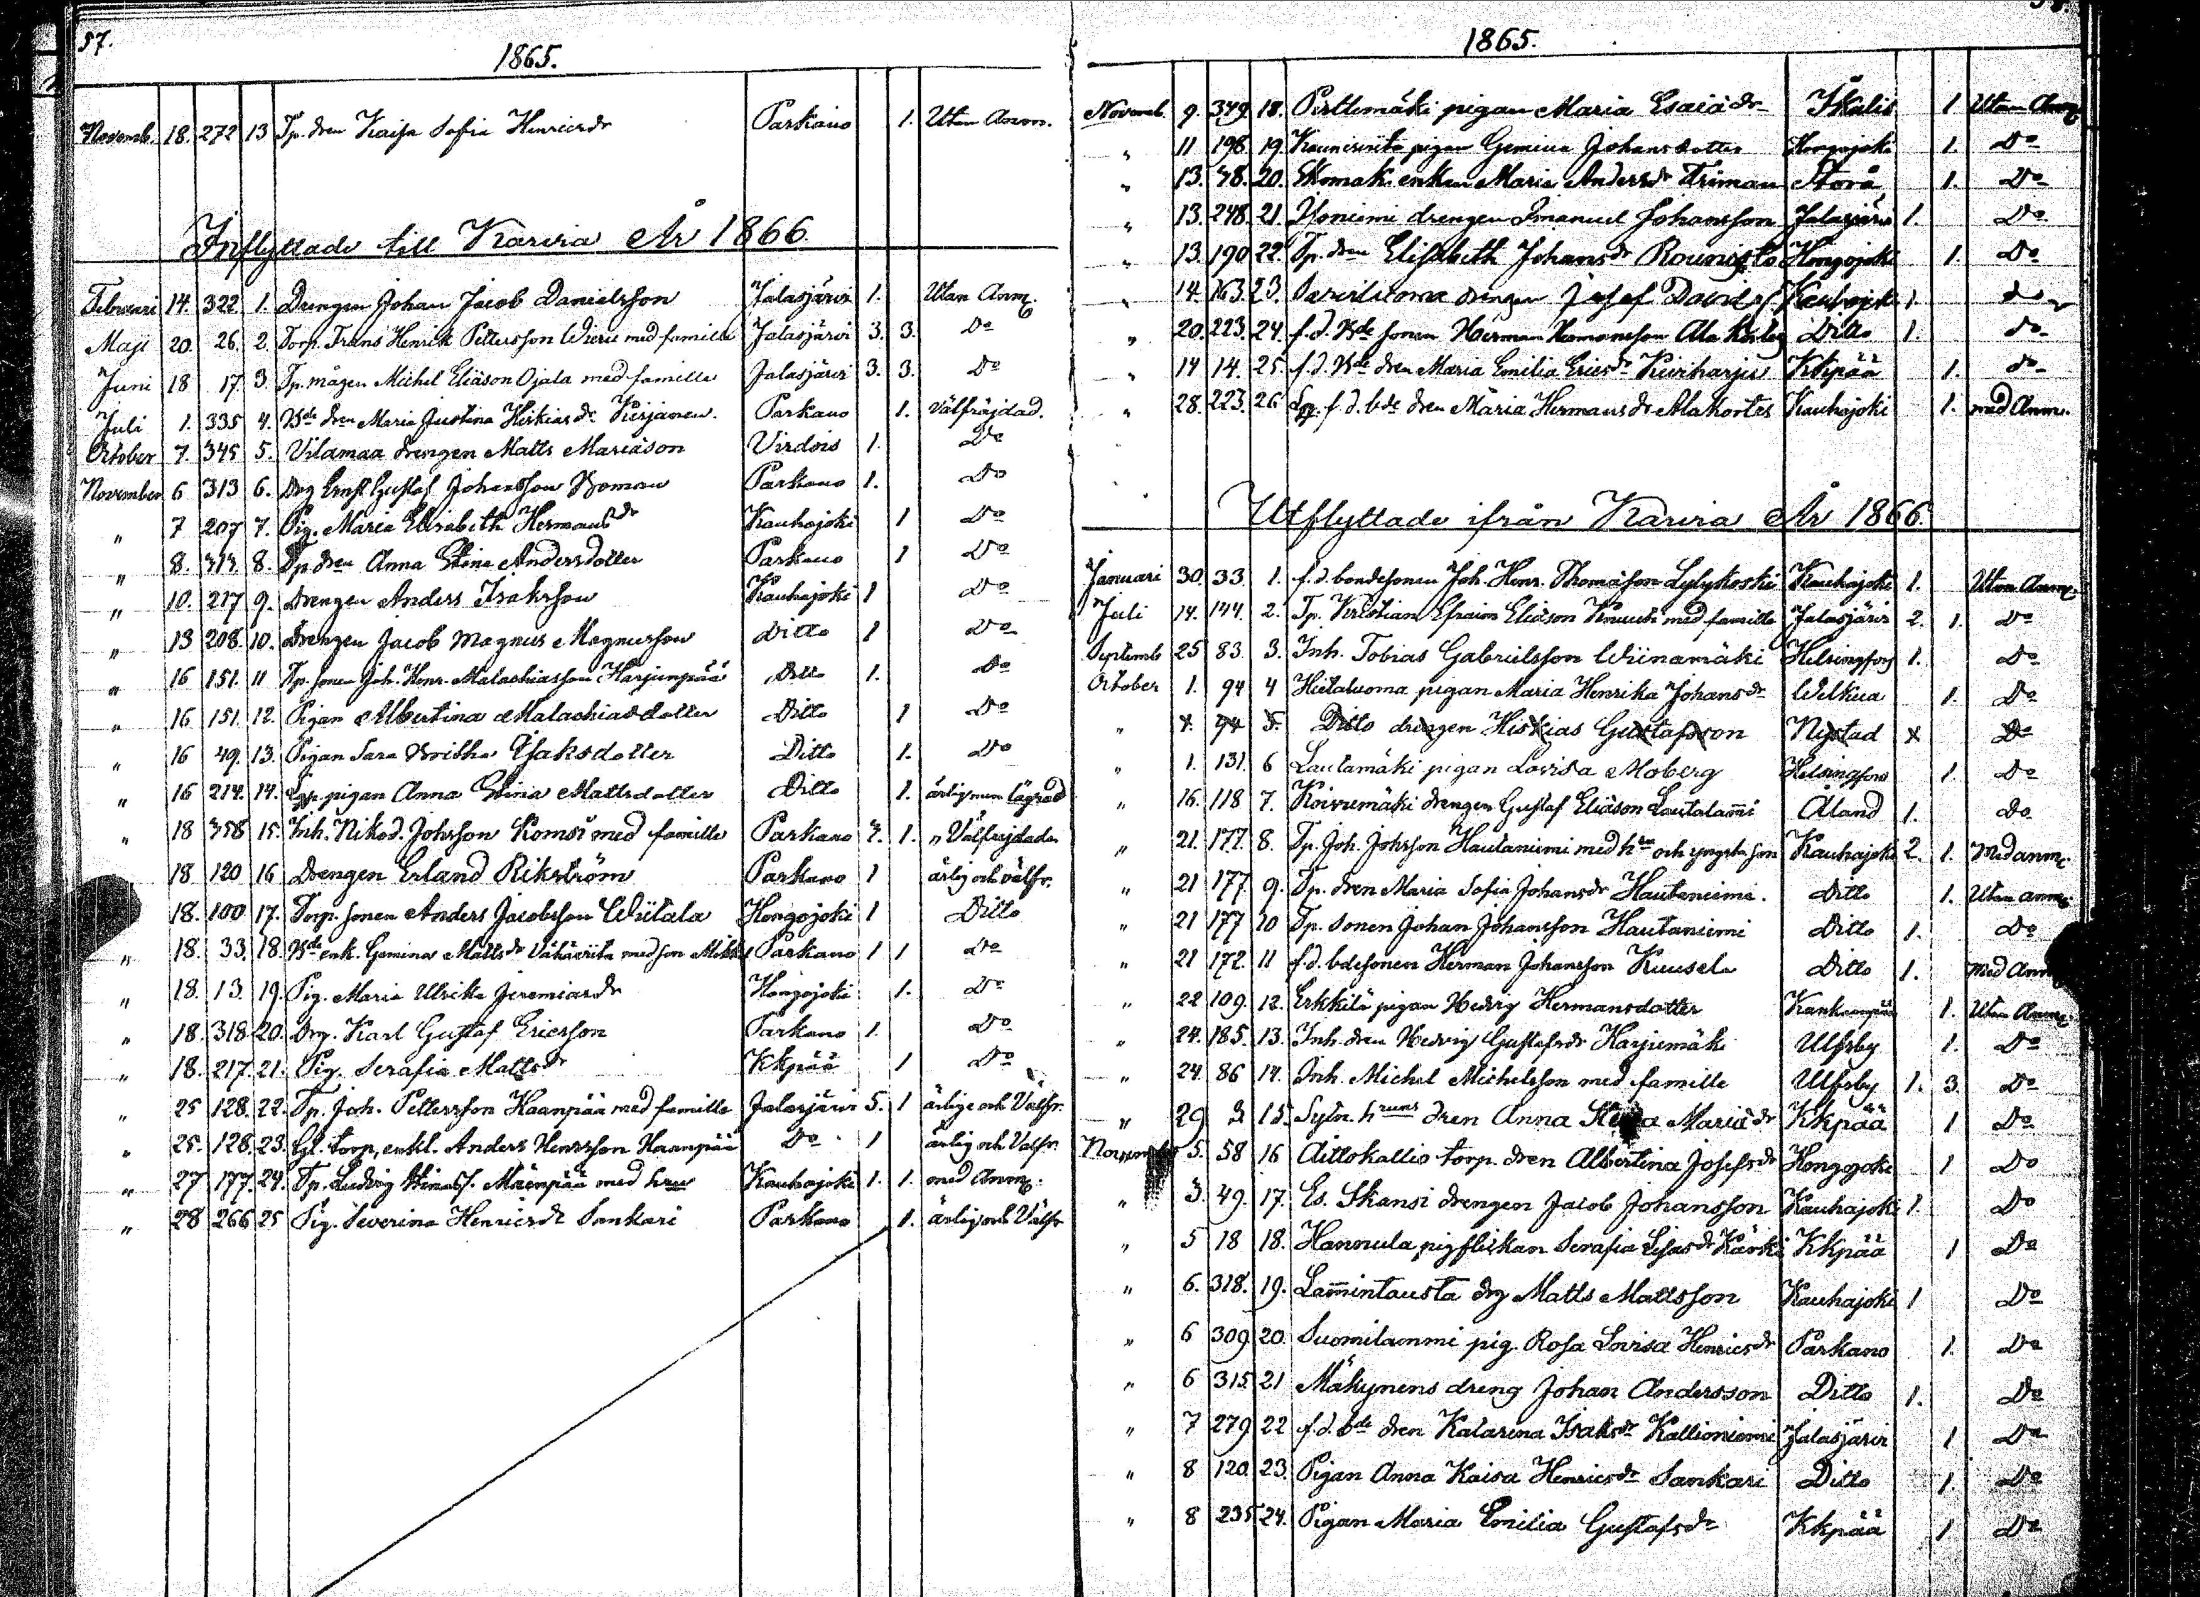 57.
1865.
Novemb. 18. 272 13 Tp. dren Kaisa Sofia Henricsdr Parkano 1. Utan Anm.
Inflyttade till Karvia År 1866.
Februari 14. 322 1. Drengen Johan Jacob Danielsson Jalasjärvi 1. Utan Anm.
Maji 20. 26. 2. Torp. Frans Henrik Pettersson med familie Jalasjärvi 3. 3. Do
Juni 18 17. 3. Tp. mågen Michel Eliäson Ojala med familie Jalasjärvi 3. 3. Do
Juli 1. 335 4. Bde dren Maria Justina Hiskiasdr Kirjanen. Parkano 1. välfräjdad.
October 7. 345 5. Vilamaa drengen Matts Mariäson Virdois 1. Do
November 6 313 6. Drg Ernst Gustaf Johansson Parkano 1. Do
" 7 207 7. Pig. Maria Elisabeth Hermansdr Kauhajoki 1 Do
" 8. 313. 8. Tp. dren Anna Stina Andersdotter Parkano 1 Do
" 10. 217 9. Drengen Anders Isaksson Kauhajoki 1 Do
" 13 208. 10. Drengen Jacob Magnus Magnusson Ditto 1 Do
" 16 151. 11 Tp. sonen Joh. Henr. Malachiasson Harjunpää Ditto 1. Do
" 16 151. 12. Pigan Albertina Malachiasdotter Ditto 1 Do
" 16 49. 13. Pigan Sara Isaksdotter Ditto 1. Do
" 16 214. 14. pigan Anna Stina Mattsdotter Ditto 1. ärlig men lägrad
" 18 358 15. Inh. Nikod. Johsson Komsi med familie Parkano 1. " Välfrejdade
18 120 16 Drengen Erland Rikström Parkano 1 ärlig och välfr.
18. 100 17. Torp. sonen Anders Jacobsson Wiitala Hongojoki 1 Ditto
" 18. 33. 18. Bde enk. Gemina Mattsdr Vähäriita med son Parkano 1 1 Do
" 18. 13. 19. Pig. Maria Ulrika Jeremiasdr Hongojoki 1. Do
" 18. 318. 20. Drg. Karl Gustaf Ericsson Parkano 1. Do
" 18. 217. 21. Pig. Serafia Mattsdr Kkpää 1 Do
" 25 128. 22. Tp. Joh. Pettersson Haanpää med familie Jalasjärvi 5. 1 ärlige och Välfr.
" 25. 128. 23. Gl. torp. enkl. Anders Henrsson Haanpää Do 1 ärlig och Välfr.
" 27 177. 24. Tp. Ludvig Mäenpää med hru Kauhajoki 1. 1. med Anm.
" 28 266 25 Pig. Severina Henricsdr Sankari Parkano 1. ärlig och Välfr
1865.
Novemb. 9. 349. 18. Pirttimäki pigan Maria Esaiädr Ikalis 1 Utan Anm.
" 11 198. 19. pigan Gemina Johansdotter Hongojoki 1. Do
" 13. 38. 20. enkan Maria Andersdr Friman Storå 1. Do
" 13. 248. 21. Yliniemi drengen Imanuel Johansson Jalasjärvi 1. Do
" 13. 190 22. Tp. dren Elisabeth Johansdr Rounisto Hongojoki 1. Do
" 14. 163. 23. drengen Josef Kauhajoki 1. do
" 20. 223. 24. f.d. Bde sonen Herman Hermansson Ala Kortes Ditto 1. do
" 14 14. 25. f.d. Bde dren Maria Emilia Ericsdr Kiviharju Kkpää 1. do
" 28. 223. 26 f.d. bde dren Maria Hermansdr Alakortes Kauhajoki 1. med Anm.
Utflyttade ifrån Karvia År 1866.
Januari 30. 33. 1. f.d. bondesonen Joh. Henr. Thomasson Lylykoski Kauhajoki 1. Utan Anm.
Juli 14. 144. 2. Tp. Kristian Efraim Eliäson med familie Jalasjärvi 2. 1. Do
Septemb 25 83. 3. Inh. Tobias Gabrielsson Wiinamäki Helsingfors 1. Do
October 1. 94 4 Hietaluoma pigan Maria Henrika Johansdr Welkua 1. Do
" 1. 94 5. Ditto drengen Hiskias Gustafsson Nystad 1 Do
" 1. 131. 6 Lautamäki pigan Lovisa Moberg Helsingfors 1. Do
" 16. 118 7. Koivumäki drengen Gustaf Eliäson Lautalammi Åland 1. do.
" 21. 177. 8. Tp. Joh. Johsson Hautaniemi med hru och yngsta son Kauhajoki 2. 1. Med anm.
" 21 177. 9. Tp. dren Maria Sofia Johansdr Hautaniemi. Ditto 1. Utan anm.
" 21 177 10 Tp. sonen Johan Johansson Hautaniemi Ditto 1. Do
" 21 172. 11 f.d. bdesonen Herman Johansson Kuusela Ditto 1. med Anm
" 22 109 12. Erkkilä pigan Hedvig Hermansdotter Kankaanpää 1. Utan Anm.
" 24. 185. 13. Inh. dren Hedvig Gustafsdr Harjumäki Ulfsby 1. Do
" 24. 86 14. Inh. Michel Michelsson med familie Ulfsby 1. 3. Do
" 29 15. dren Anna Mariädr Kkpää 1 Do
November 5. 58 16 Aittokallio torp. dren Albertina Josefsdr Hongojoki 1 Do
" 5. 49. 17. Es. Skansi drengen Jacob Johansson Kauhajoki 1. Do
" 5 18 18. Hannula pigflickan Serafia Kärki Kkpää 1 Do
" 6. 318. 19. Lammintausta drg Matts Mattsson Kauhajoki 1 Do
" 6 309 20. Suomilammi pig. Rosa Lovisa Henricsdr Parkano 1. Do
" 6 315. 21 Mäkynens dreng Johan Andersson Ditto 1. Do
" 7 279 22 f.d. bde dren Katarina Isaksdr Kallioniemi Jalasjärvi 1 Do
" 8 120. 23. Pigan Anna Kaisa Henricsdr Sankari Ditto 1. Do
" 8 235 24. Pigan Maria Emilia Gustafsdr Kkpää 1 Do